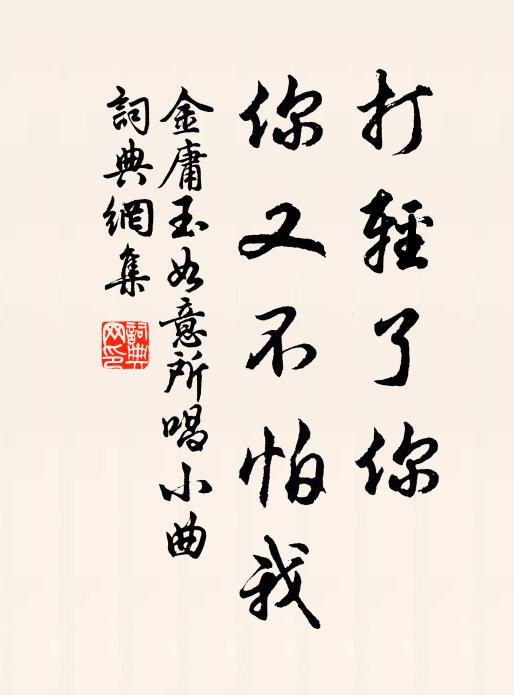 打輕了你
你又不怕我
金庸玉如意所唱小曲
詞典網集
詞典网印